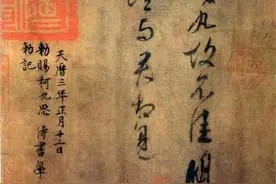 丸故不佳明
與君相見
天曆三年正月十二日
勅賜柯九思侍書學
勅記